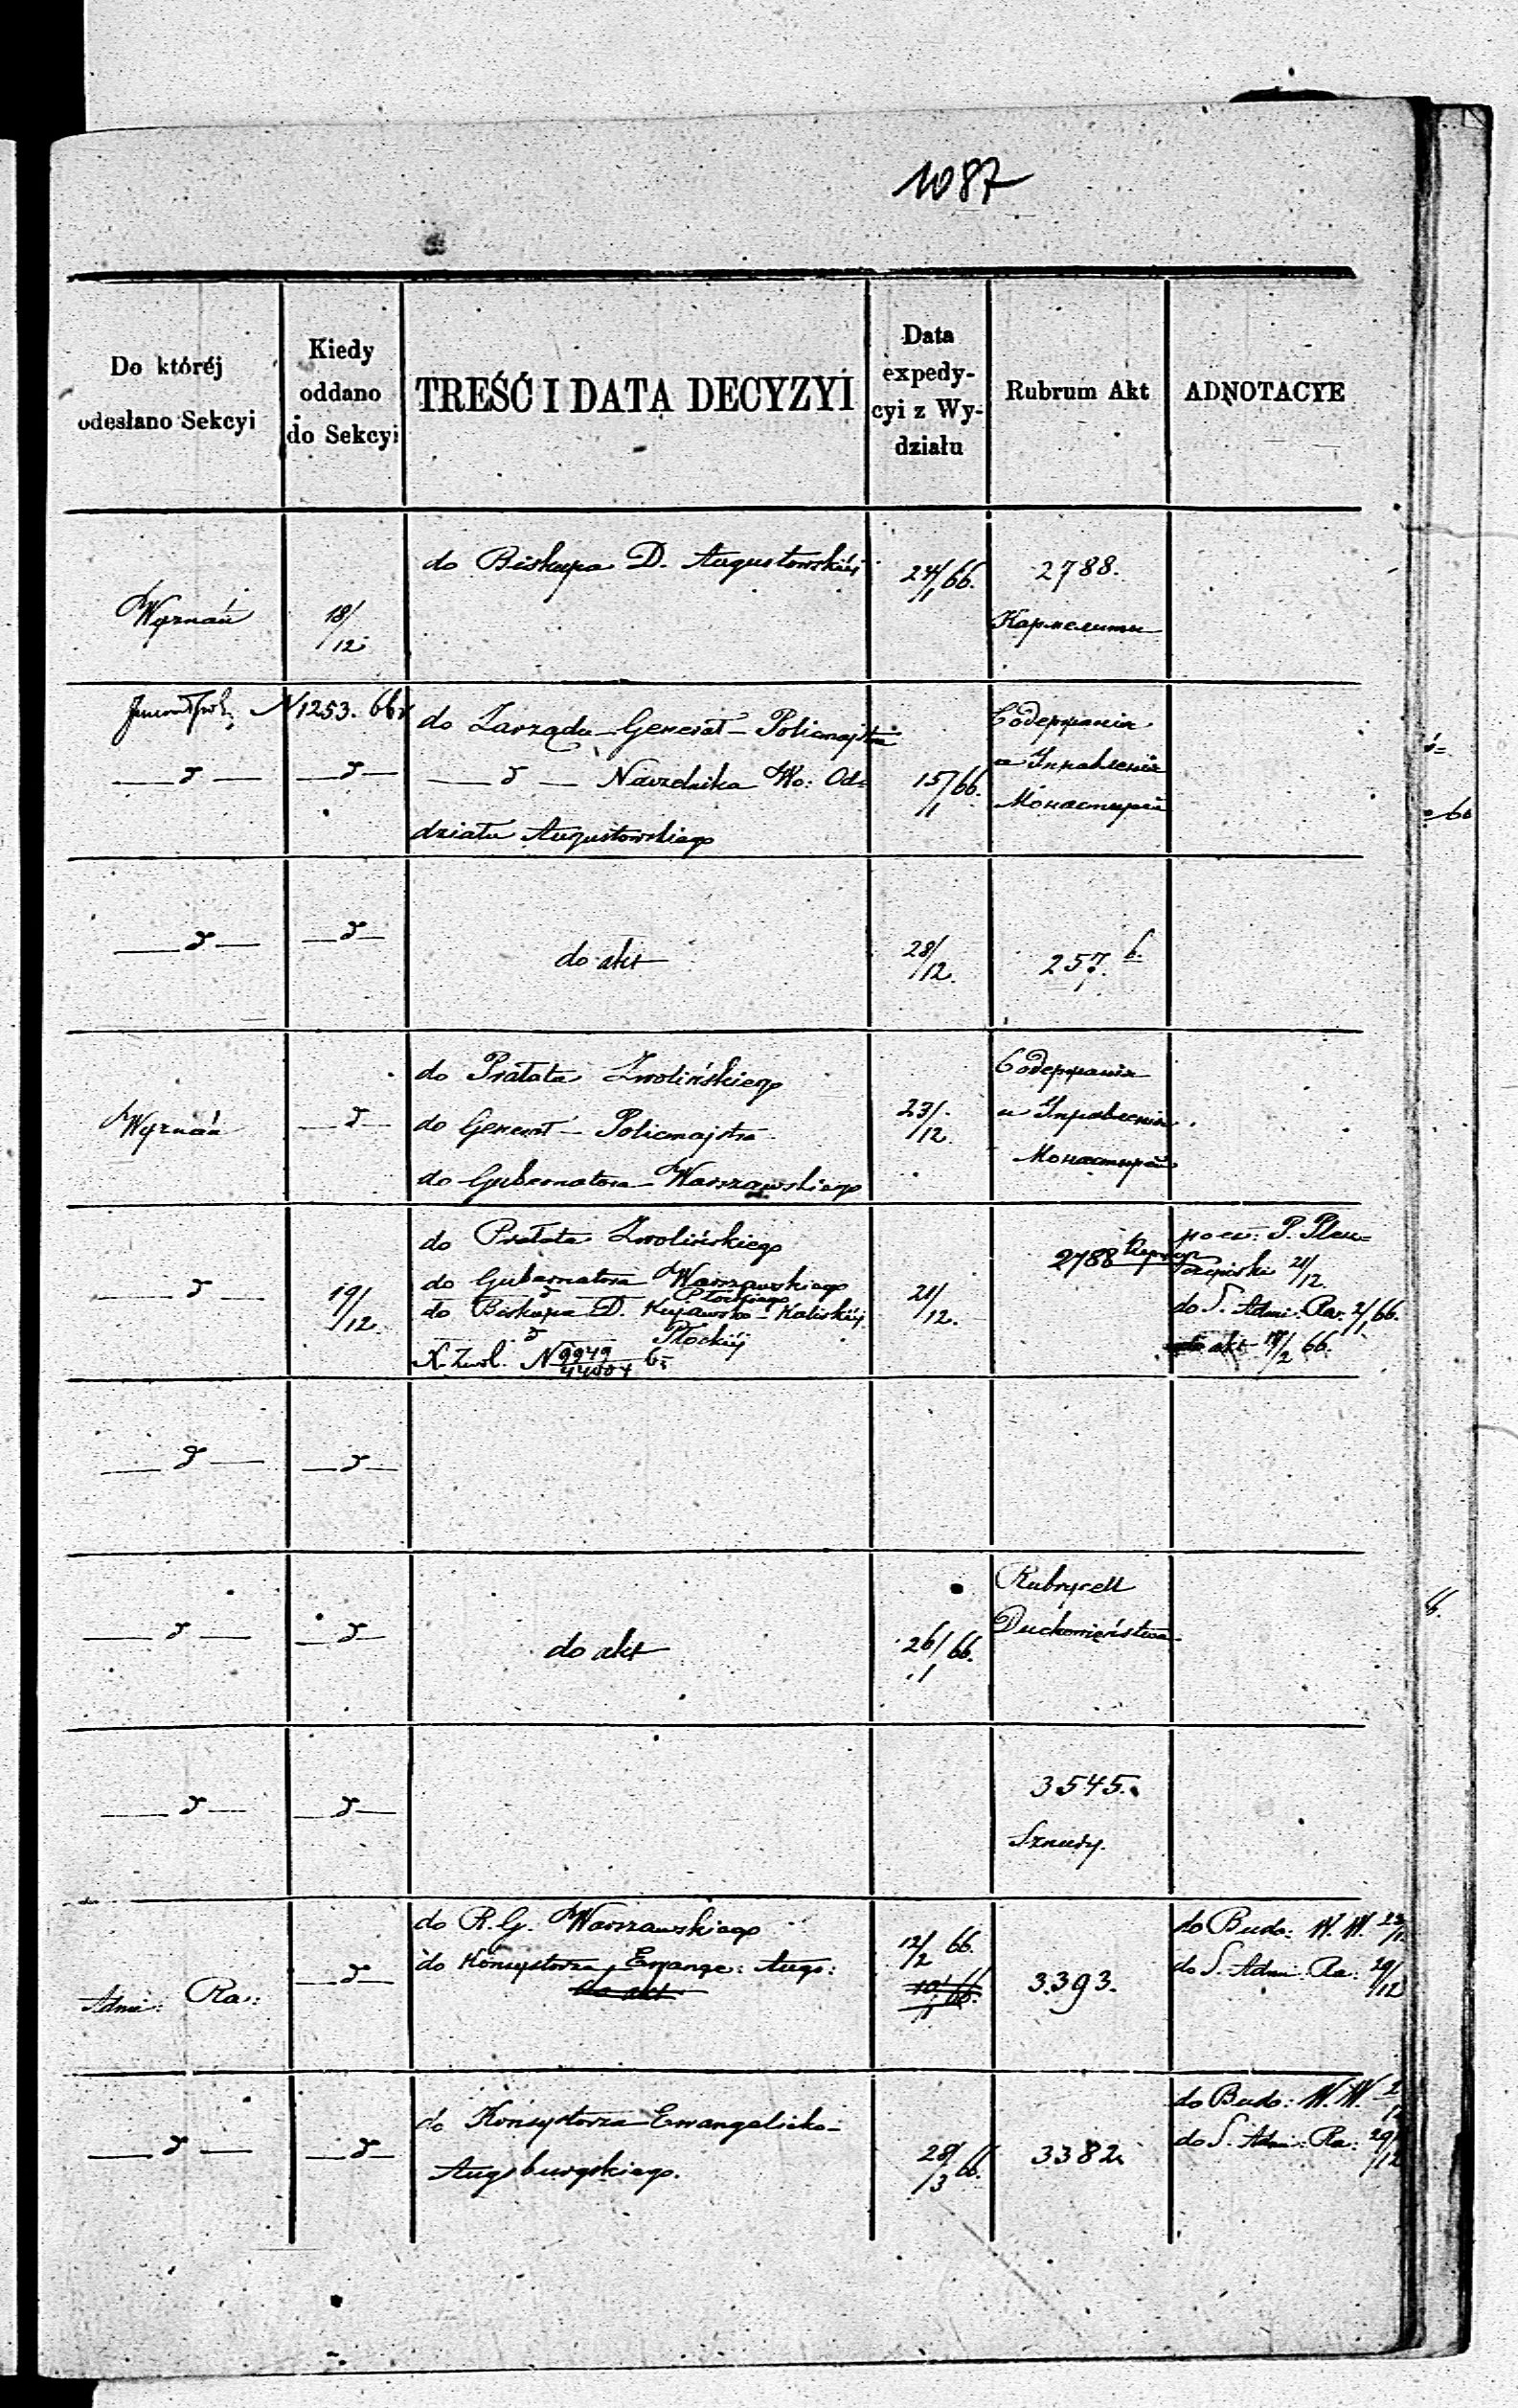 1087
Do któréj
odesłano Sekcyi
Kiedy
oddano
do Sekcyi
TREŚĆ I DATA DECYZYI
Data
expedy-
cyi z Wy-
działu
Rubrum Akt
ADNOTACYE
do Biskupa D. Augustowskiéj
24/1 66.
2788.
Wyznań
18/12
Кармелиты
N 1253. 66
do Zarządu General-Policmajstra
Содержанія
— d — — d — — d — Naczelnika Wo: Od=
15/1 66.
и Управленія
Монастырей
działu Augustowskiego
— d — — d —
do akt
28/12.
257. b.
do Prałata Zwolińskiego
Содержанія
Wyznań — d —
do General-Policmajstra
23/12.
и Управленія
Монастырей
do Gubernatora Warszawskiego
do Prałata Zwolińskiego
2788
— d —
19/12.
do Gubernatora Warszawskiego
d Płockiego
21/12.
21/12
do Biskupa D. Kujawsko-Kaliskiéj
do S. Admi: Ra: 2/1 66.
d Płockiéj
akt 19/2 66.
X. Zwol. N 9949
— d — — d —
— d — — d —
do akt
26/1 66.
Rubrycell
Duchowieństwa
— d — — d —
3545.
Sznury.
do R. G. Warszawskiego
12/2 66.
do Budo: W. W.
Admi: Ra: — d —
do Konsystorza Ewange: Augs:
do akt
10/1 66.
3393.
do S. Admi: Ra: 29/12
— d — — d —
do Konsystorza Ewangelicko-
do Budo: W. W.
Augsburgskiego.
28/3 66.
3382
do S. Admi: Ra: 29/12